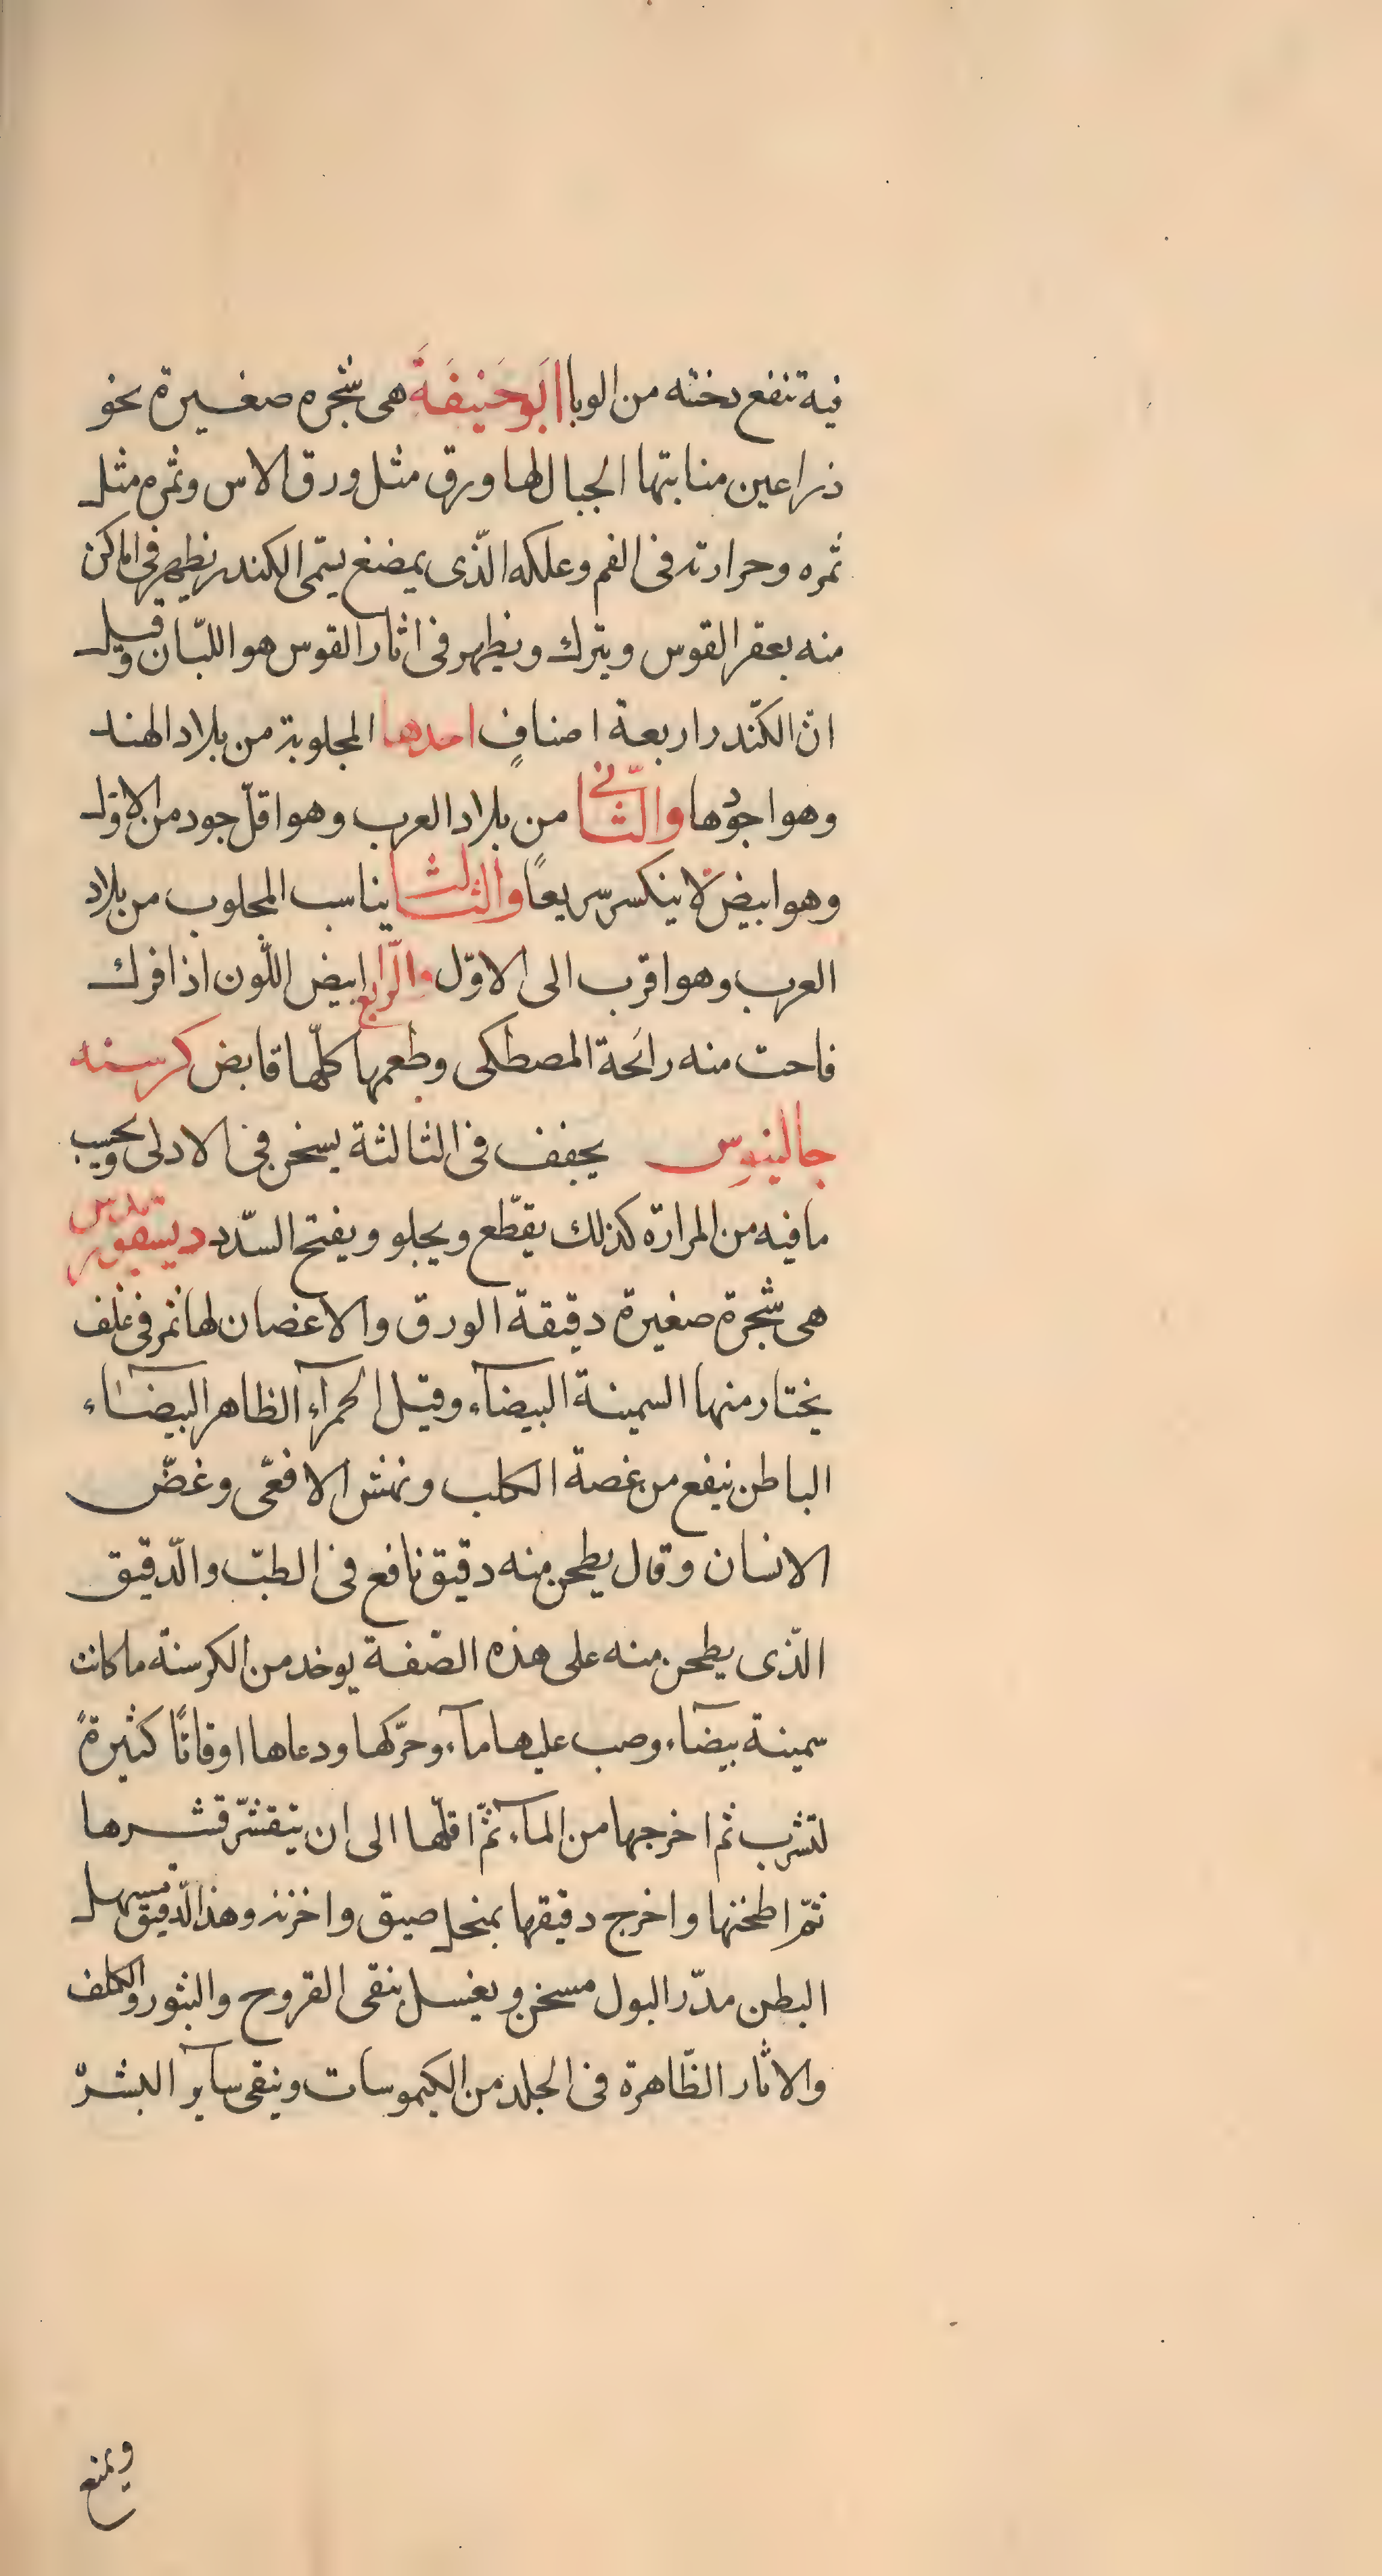 فية تنفع دخنته من الوبا ابَوحَنيفَةَ هى شجره صغيرة نحو
ذراعين منابتها الجبال لها ورق مثل ورق الاس وثمره مثل
ثمره وحرارته فى الفم وعلكه الّذى يمضغ يسّمى الكندر يظهر فى اماكن
منه بعقر القوس ويترك ويظهر فى اثار القوس هو اللبّان وقيل
انّ الكنّدر اربعة اصنافٍ احدها المجلوبة من بلاد الهند
وهو اجودها والثّانى من بلاد العرب وهو اقلّ جود من الاوّل
وهو ابيض لا ينكسر سريعًا والثالث يناسب المجلوب من بلاد
العرب وهو اقرب الى الاوّل والرّابع ابيض اللّون اذا فرك
فاحت منه رائحة المصطكى وطعمها كلّها قابض كرسنه
جالينوس يجفف فى الثالثة يسخن فى الاولى وبحسب
ما فيه من المرارة كذلك يقطّع ويجلو ويفتح السّدد ديسقوريدس
هى شجرة صغيرة دقيقة الورق والاغصان لها ثمر فى غلف
يختار منها السمينة البيضآء وقيل الحمرآء الظاهر البيضآء
الباطن ينفع من غصة الكلب ونهش الافعّى وغضّ
الانسان وقال يطحن منه دقيق نافع فى الطبّ والدّقيق
الّذى يطحن منه على هذه الصّفة يوخد من الكرسنة ما كانت
سمينة بيضآء وصب عليها مآء وحرّكها ودعاها اوقاتًا كثيرةً
لتشرب ثم اخرجها من المآء ثمّ اقلّها الى ان يتقشّر قشرها
ثمّ اطحنها واخرج دقيقها بمنحل صيق واخزنه وهذا الدّقيق يسهل
البطن مدّر البول مسخن ويغسل ينقى القروح والبثور والكلف
والاثار الظّاهرة فى الجلد من الكيموسات وينقى سآير البشرّ
ويمنع